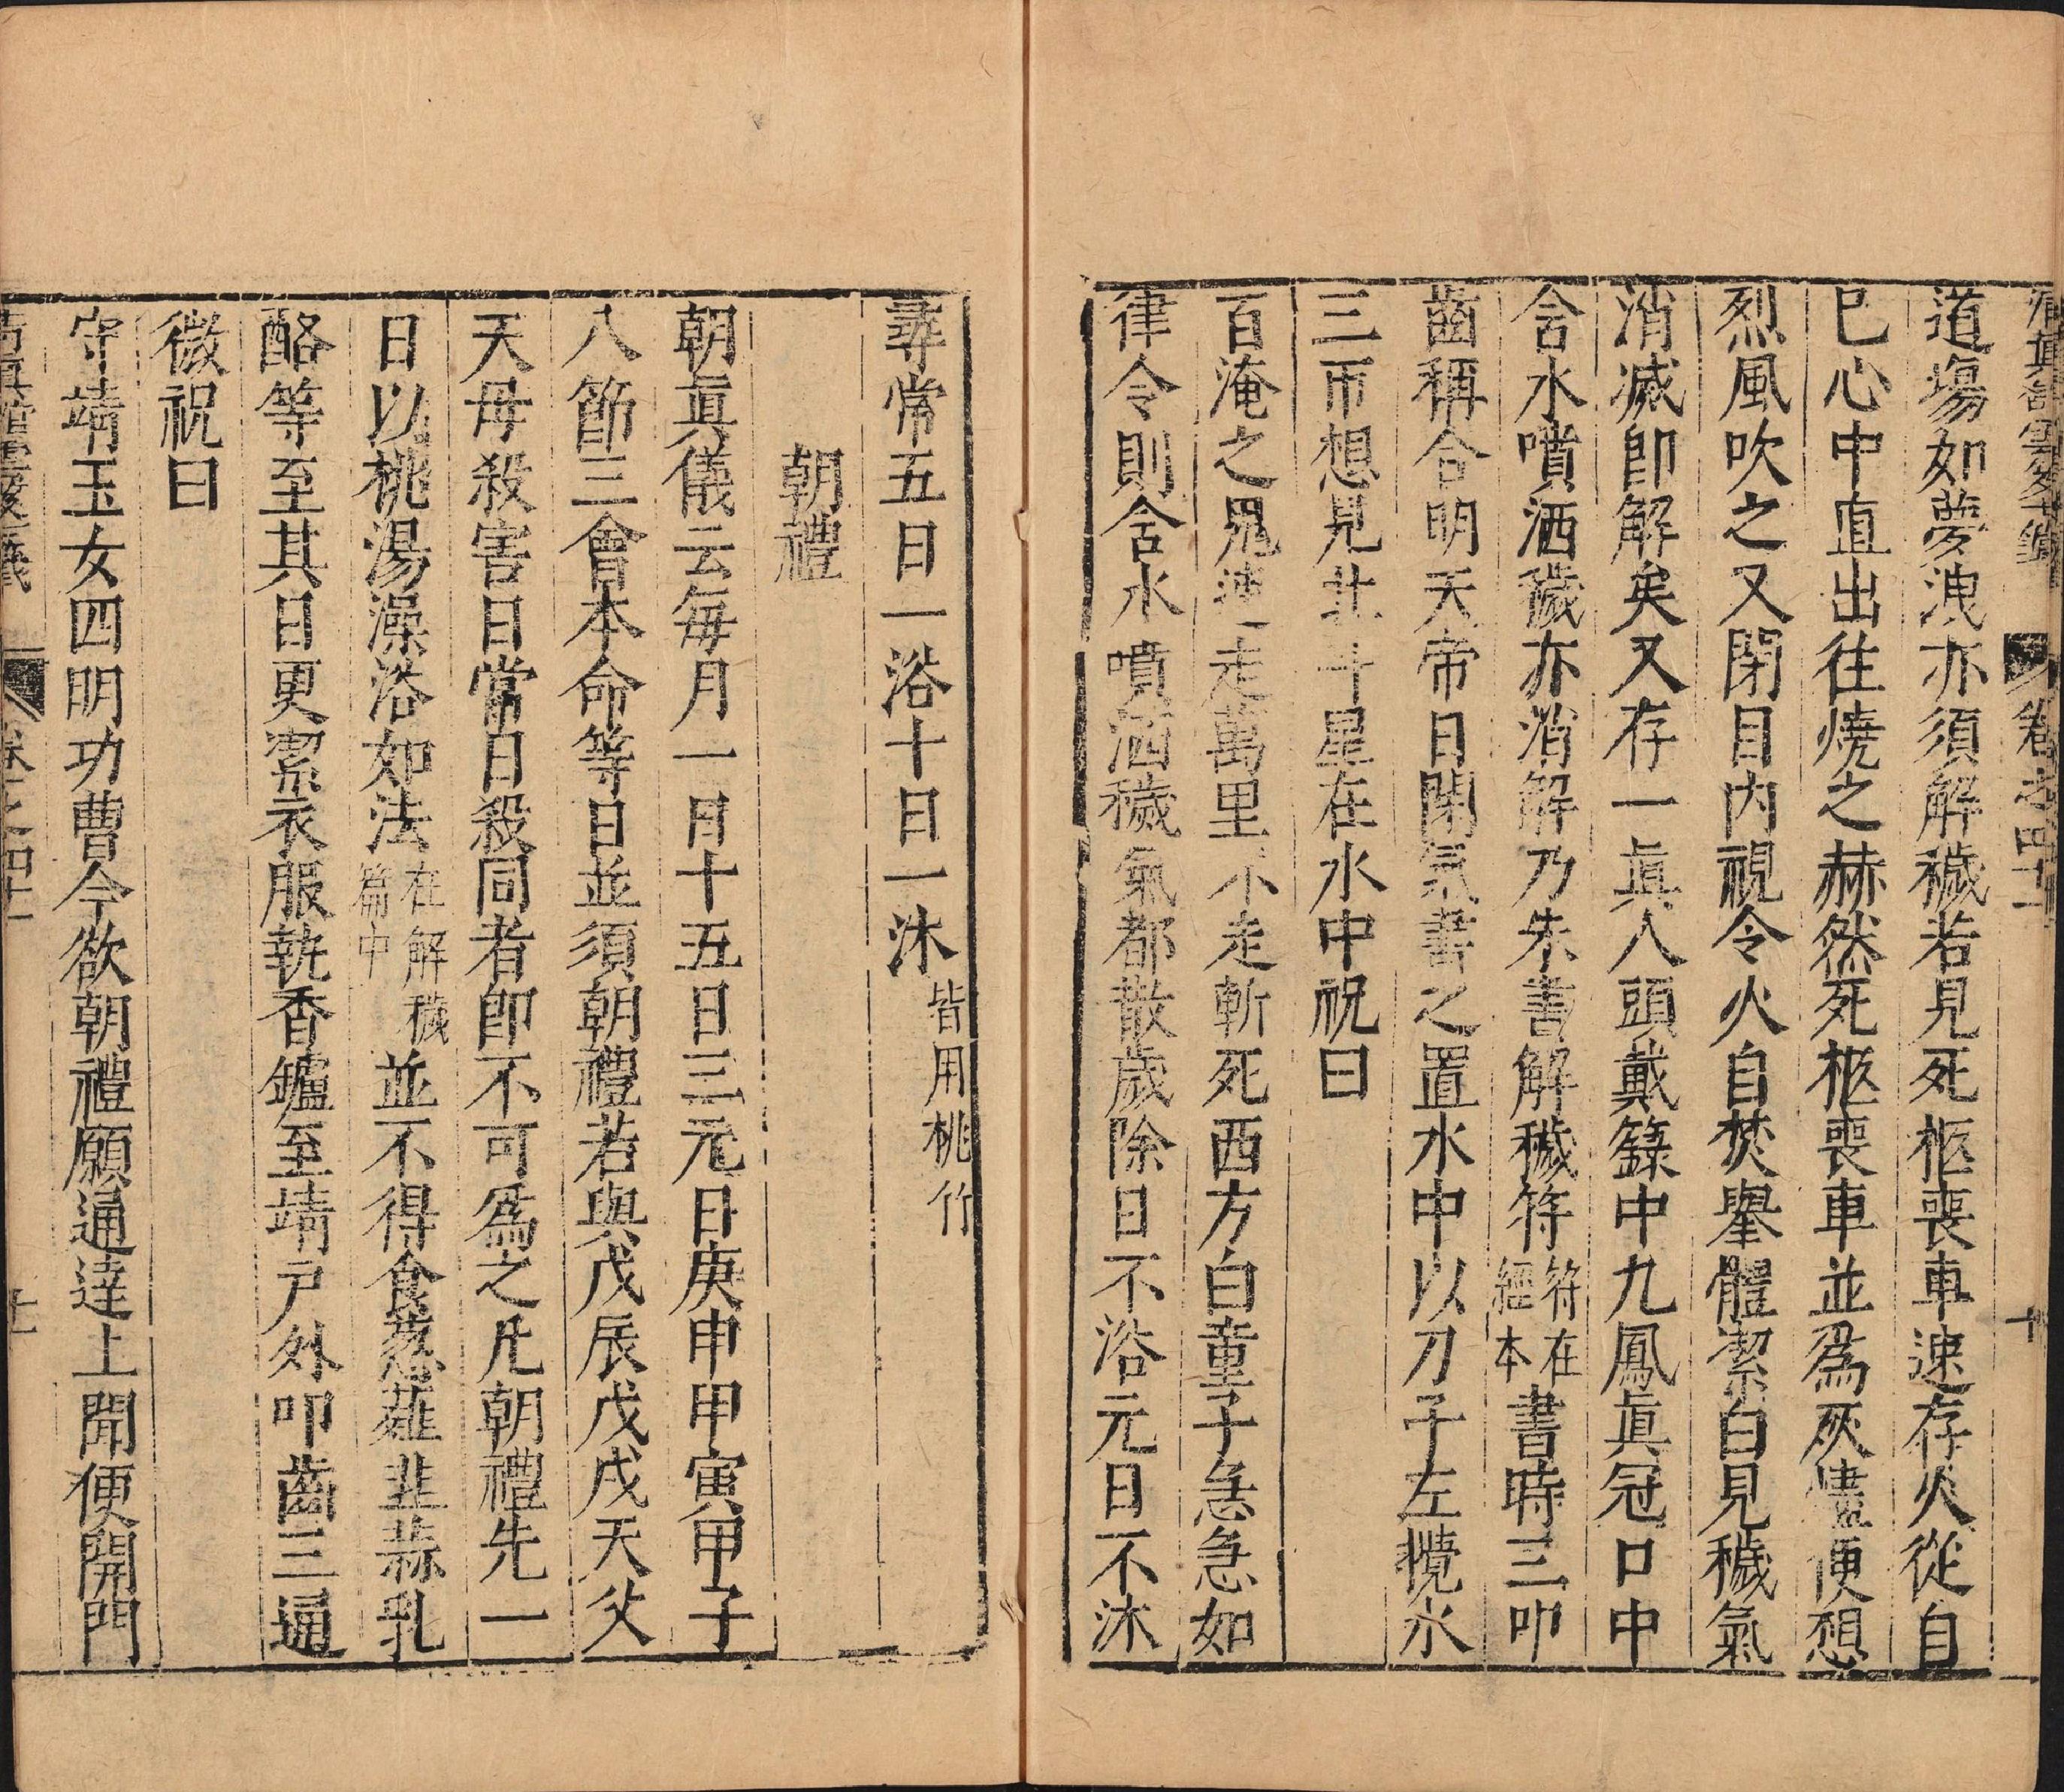 卷之四十一 十
道塲如夢洩亦須解穢若見死柩喪車速存火從自
巳心中直出往燒之赫然死柩喪車並爲灰燼便想
烈風吹之又閉目内視令火自焚舉體潔白見穢氣
消滅即解矣又存一眞人頭戴籙中九鳳眞冠口中
含水噴洒穢亦消解乃朱書解穢符符在經本書時三叩
齒稱合明天帝日閉氣書之置水中以刀子左攪水
三帀想見北斗星在水中祝曰
百淹之鬼速走萬里不走斬死西方白童子急急如
律令則含水噴洒穢氣都散歲除日不浴元日不沐
尋常五日一浴十日一沐皆用桃竹
朝禮
朝眞儀云毎月一日十五日三元日庚申甲寅甲子
八節三會本命等日並須朝禮若與戊辰戊戌天父
天母殺害日當日殺同者即不可爲之凡朝禮先一
日以桃湯澡浴如法在解穢篇中並不得食葱薤韭蒜乳
酪等至其日更潔衣服執香鑪至靖戸外叩齒三通
微祝曰
守靖玉女四明功曹今欲朝禮願通達上聞便開門
卷之四十一 十一